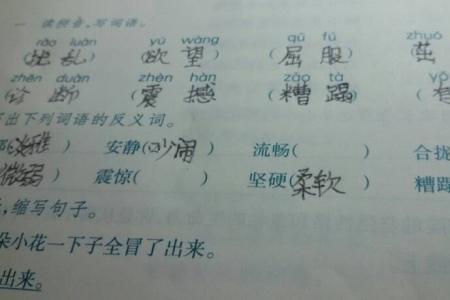 一 读拼音，写词语。
rǎo luàn yù wàng qū fú zhuó
(扰乱) (欲望) (屈服) (茁
zhěn duàn zhèn hàn zāo tà
(诊断) (震撼) (糟蹋) (
出下列词语的反义词。
淡雅) 安静(吵闹) 流畅( ) 合拢
微弱) 震惊( ) 坚硬(柔软) 糟蹋
，缩写句子。
朵小花一下子全冒了出来。
出来。